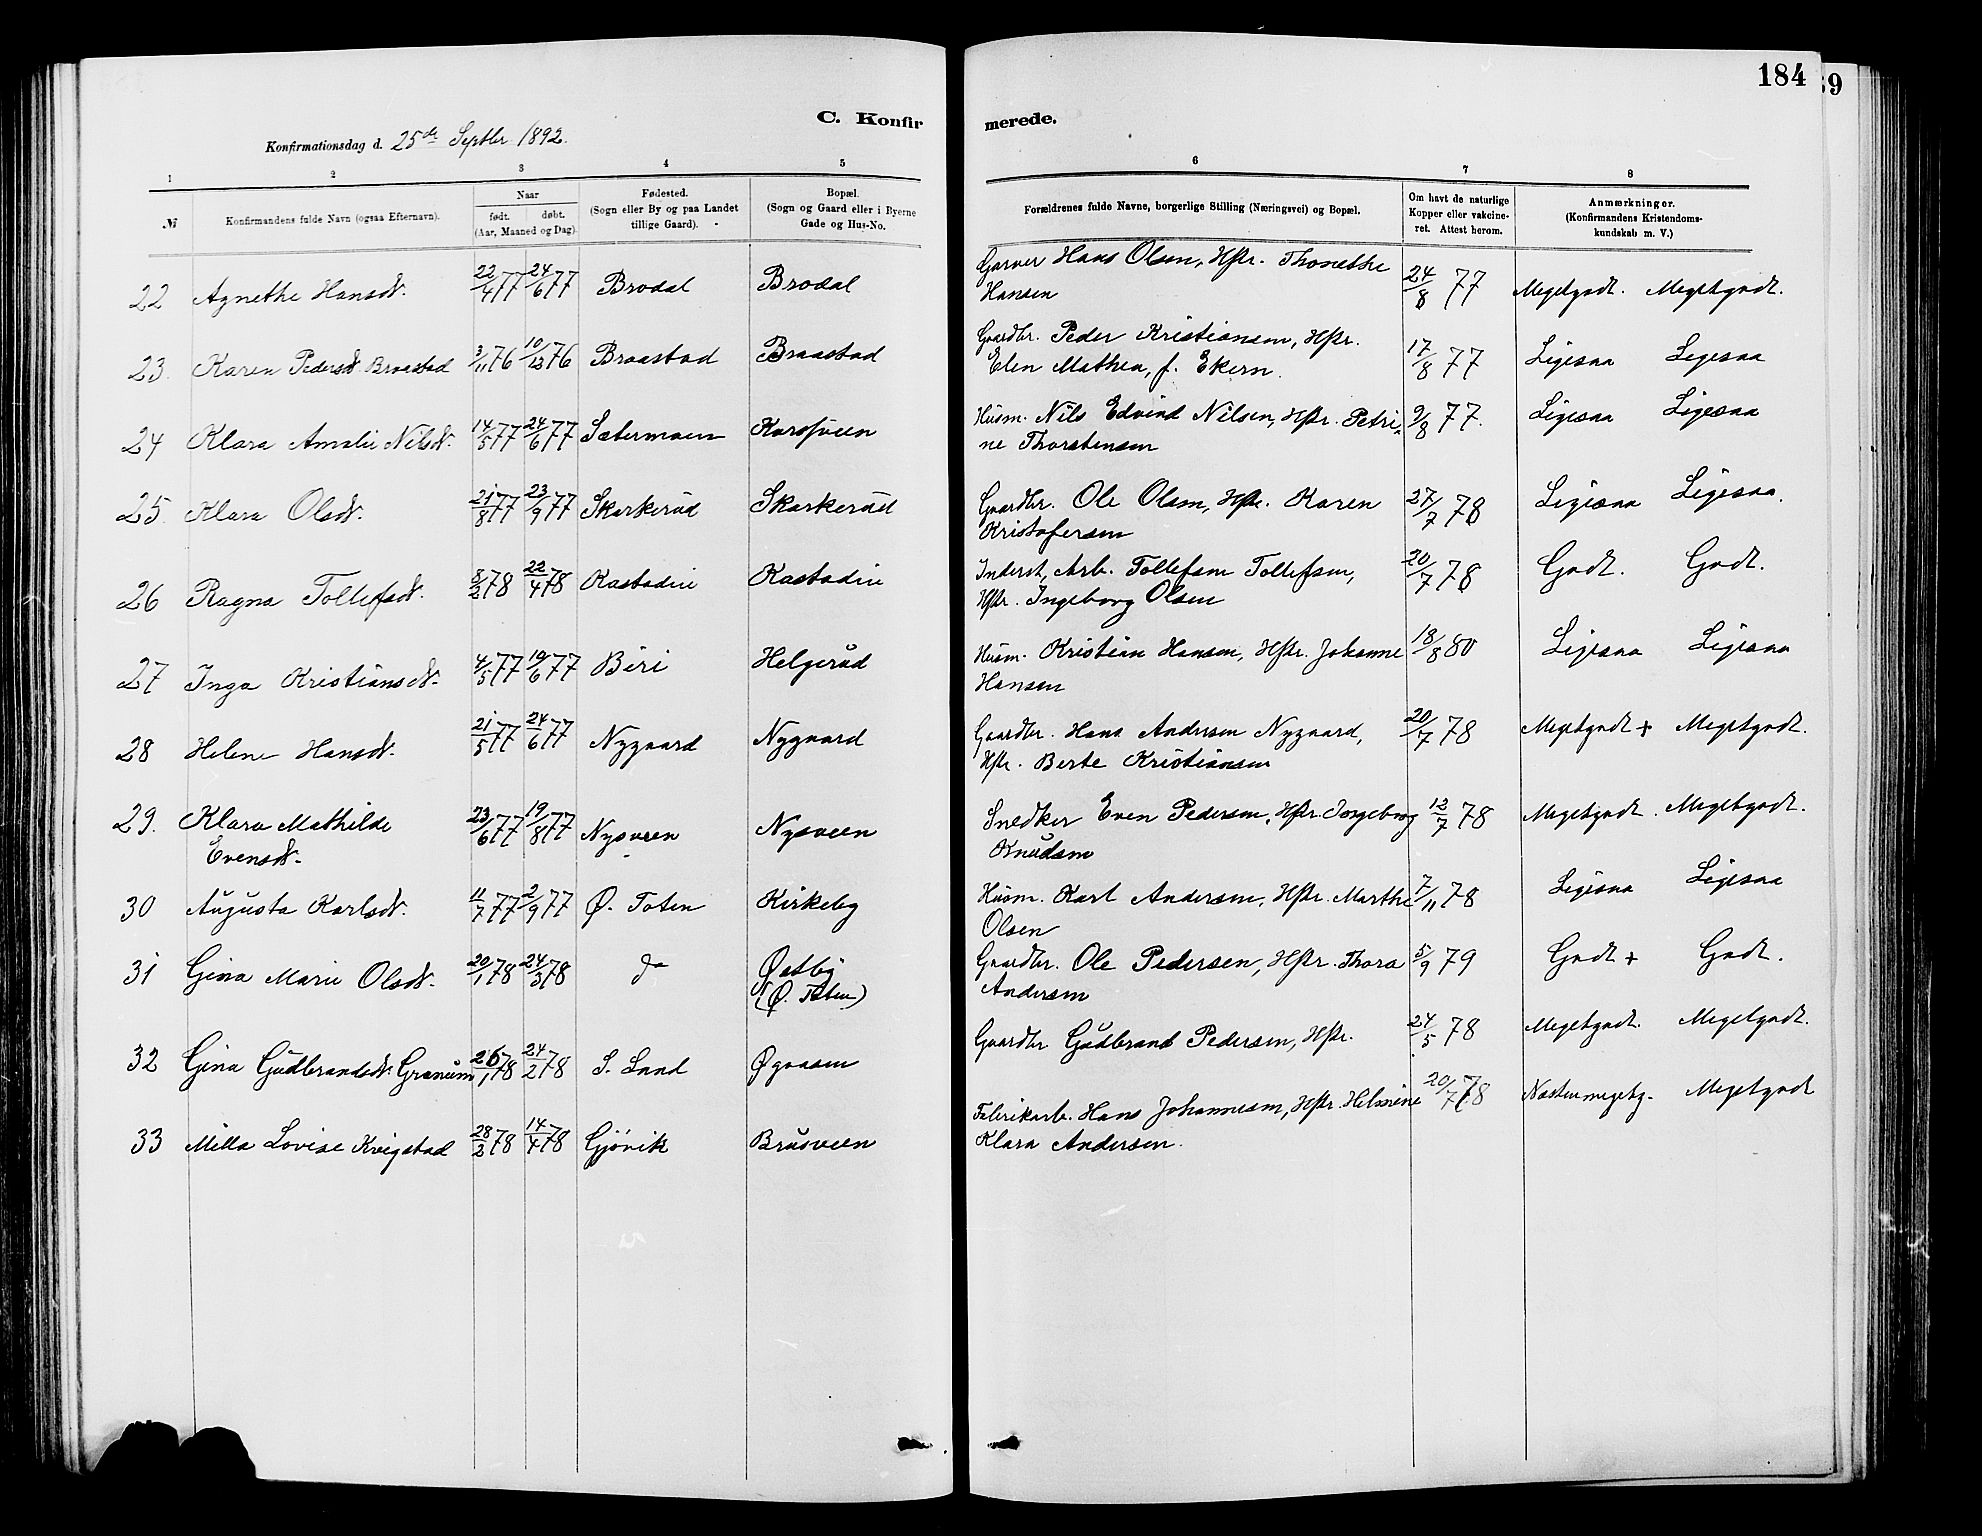 184
39
C. Konfir merede.
Konfirmationsdag d. 25de Septbr. 1892.
1 2 3 4 5 6 7 8
№ Konfirmandens fulde Navn (ogsaa Efternavn). Naar født. døbt. (Aar, Maaned og Dag). Fødested. (Sogn eller By og paa Landet tillige Gaard). Bopæl. (Sogn og Gaard eller i Byerne Gade og Hus-No. Forældrenes fulde Navne, borgerlige Stilling (Næringsvei) og Bopæl. Om havt de naturlige Kopper eller vakcineret. Attest herom. Anmærkninger. (Konfirmandens Kristendomskundskab m. V.)
22 Agnethe Hansdt. 22/4 77 24/6 77 Brodal Brodal Garver Hans Olsen, Hstr. Thonethe Hansen 24/8 77 Megetgodt. Megetgodt.
23. Karen Pedersdt. Braastad 3/11 76 10/12 76 Braastad Braastad Gaardbr. Peder Kristiansen, Hstr. Elen Mathea, f. Ekern. 17/8 77 Ligesaa Ligesaa
24 Klara Amalie Nilsdt. 14/5 77 24/6 77 Sætermoen Korsveen Husm. Nils Edvind Nilsen, Hstr. Petrine Thorstensen 9/8 77. Ligesaa Ligesaa
25. Klara Olsdt. 21/8 77 23/9 77 Skarkerud Skarkerud Gaardbr. Ole Olsen, Hstr. Karen Kristofersen 27/7 78 Ligesaa Ligesaa.
26 Ragna Tollefsdt. 8/2 78 22/4 78 Kastadie Kastadie Inderst, Arb. Tollefsen Tollefsen, Hstr. Ingeborg Olsen 20/7 78 Godt. Godt.
27 Inga Kristiansdt. 4/5 77 10/6 77 Biri Helgerud Husm. Kristian Hansen, Hstr. Johanne Hansen 18/8 80 Ligesaa Ligesaa
28 Helene Hansdt. 21/5 77 24/6 77 Nygaard Nygaard Gaardbr. Hans Andersen Nygaard, Hstr. Berte Kristiansen 20/7 78 Megetgodt + Megetgodt.
29. Klara Mathilde Evensdt. 23/6 77 19/8 77 Nysveen Nysveen Snedker Even Pedersen, Hstr. Ingeborg Knudsen 12/7 78 Megetgodt. Megetgodt.
30 Augusta Karlsdt. 11/7 77 2/9 77 Ø. Toten Kirkeby Husm. Karl Andersen, Hstr. Marthe Olsen 7/11 78 Ligesaa Ligesaa
31 Gina Marie Olsdt. 20/1 78 24/3 78 do Østby (Ø. Toten) Gaardbr. Ole Pedersen, Hstr. Thora Andersen 5/9 79 Godt + Godt.
32 Gina Gudbrandsdt. Granum 26/1 78 24/2 78 S. Land Øgaasen Gaardbr Gudbrand Pedersen, Hstr. 24/5 78 Megetgodt. Megetgodt.
33 Milla Lovise Kvigstad 28/2 78 14/4 78 Gjøvik Brusveen Fabrikarb. Hans Johannesen, Hstr. Klara Andersen. 20/7 78 Næstenmegetg. Megetgodt